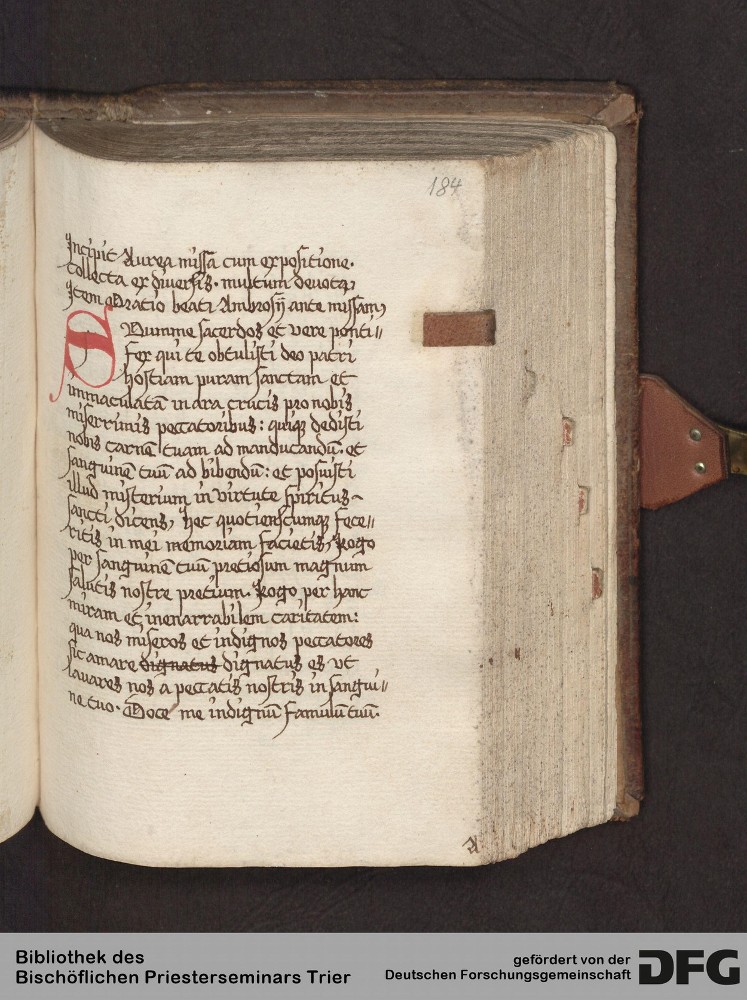 184
Incipit Aurea missa cum expositione.
Collecta ex diuersis. multum deuota,
Item Oratio beati Ambrosij ante missam,
SUmme sacerdos et vere ponti//
fex qui te obtulisti deo patri
hostiam puram sanctam et
immaculatā in ara crucis pro nobis
miserrimis peccatoribus: quiqꝫ dedisti
nobis carnē tuam ad manducandū. et
sanguinē tuū ad bibendū: et posuisti
illud misterium in virtute spiritus
sancti dicens, hec quotienscumqꝫ fece//
ritis in mei memoriam facietis, Rogo
per sanguinē tuū pretiosum magnum
salutis nostre pretium. Rogo per hanc
miram et inenarrabilem caritatem:
qua nos miseros et indignos peccatores
sic amare dignatus dignatus es vt
lauares nos a peccatis nostris in sangui//
ne tuo. Doce me indignū famulū tuū.
Bibliothek des
Bischöflichen Priesterseminars Trier
gefördert von der
Deutschen Forschungsgemeinschaft
DFG